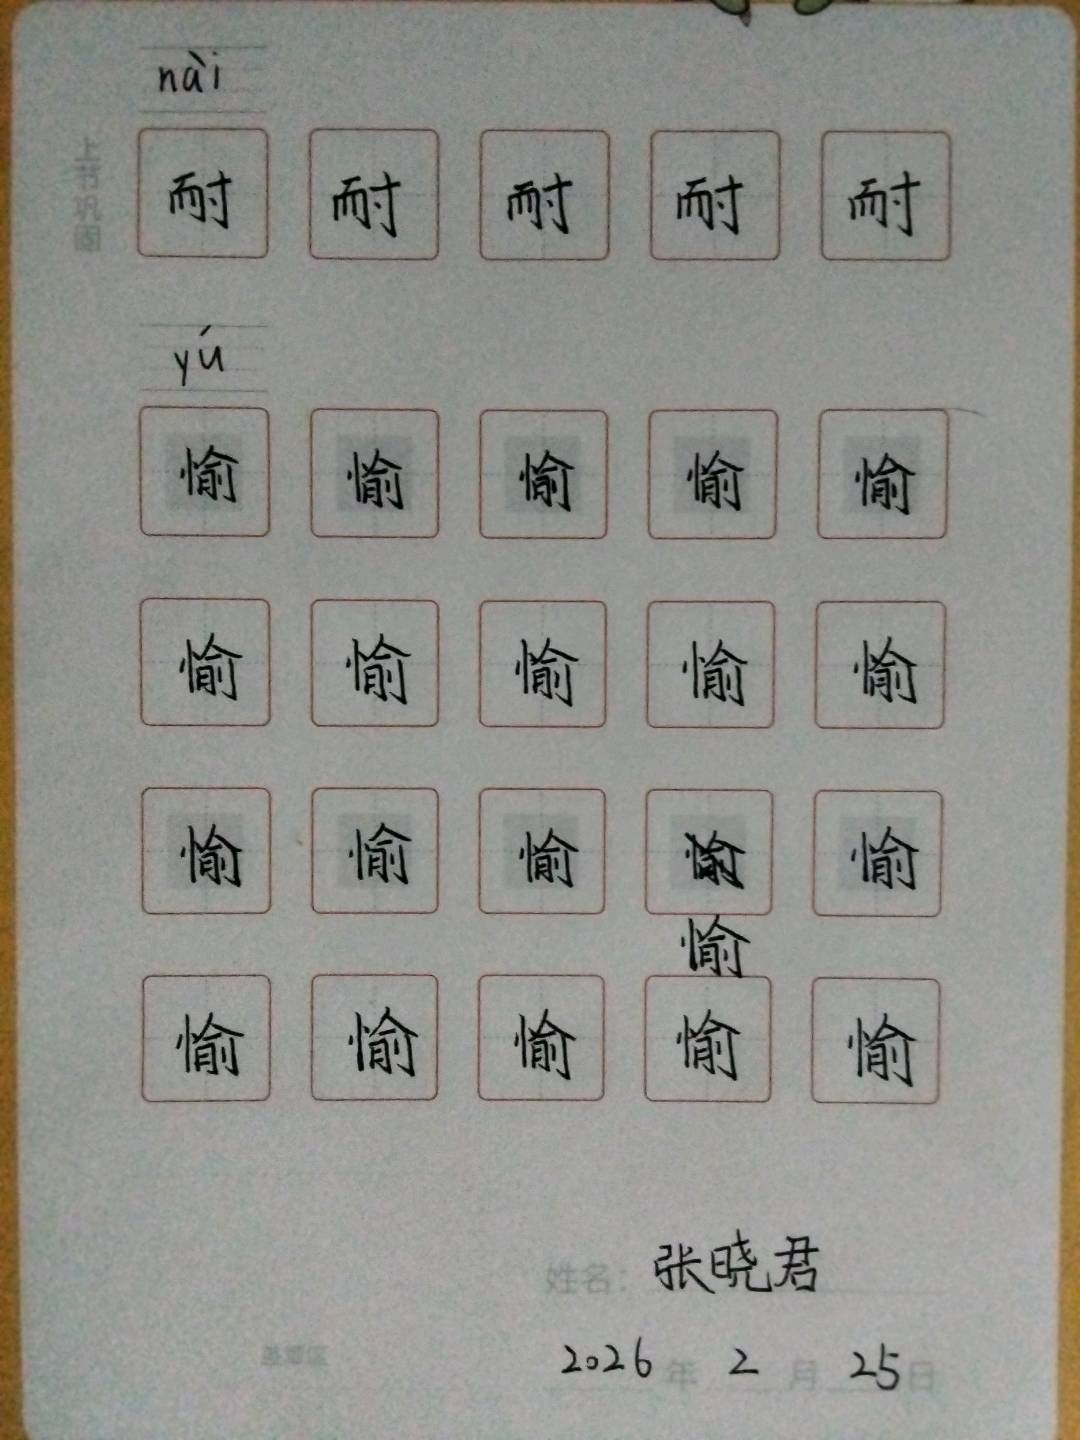 nài
上节巩固
耐 耐 耐 耐 耐
yú
愉 愉 愉 愉 愉
愉 愉 愉 愉 愉
愉 愉 愉 愉 愉
愉
愉 愉 愉 愉 愉
姓名: 张晓君
2026年 2月 25日